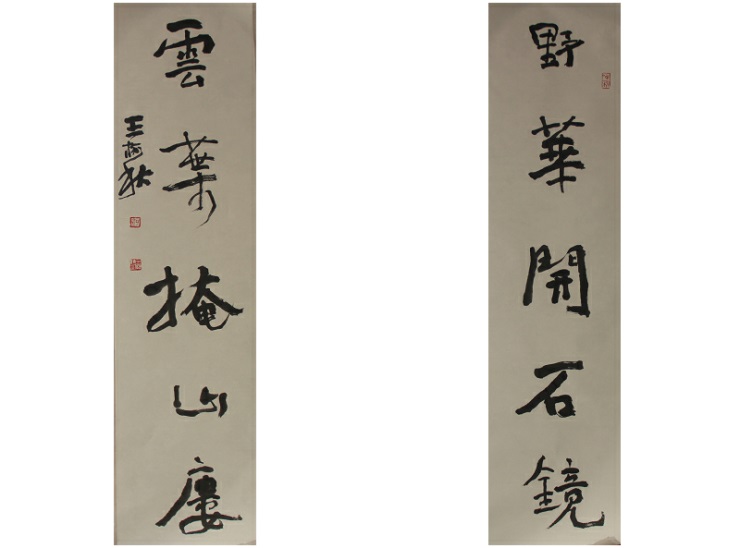 野華開石鏡
雲葉掩山廔
王秋